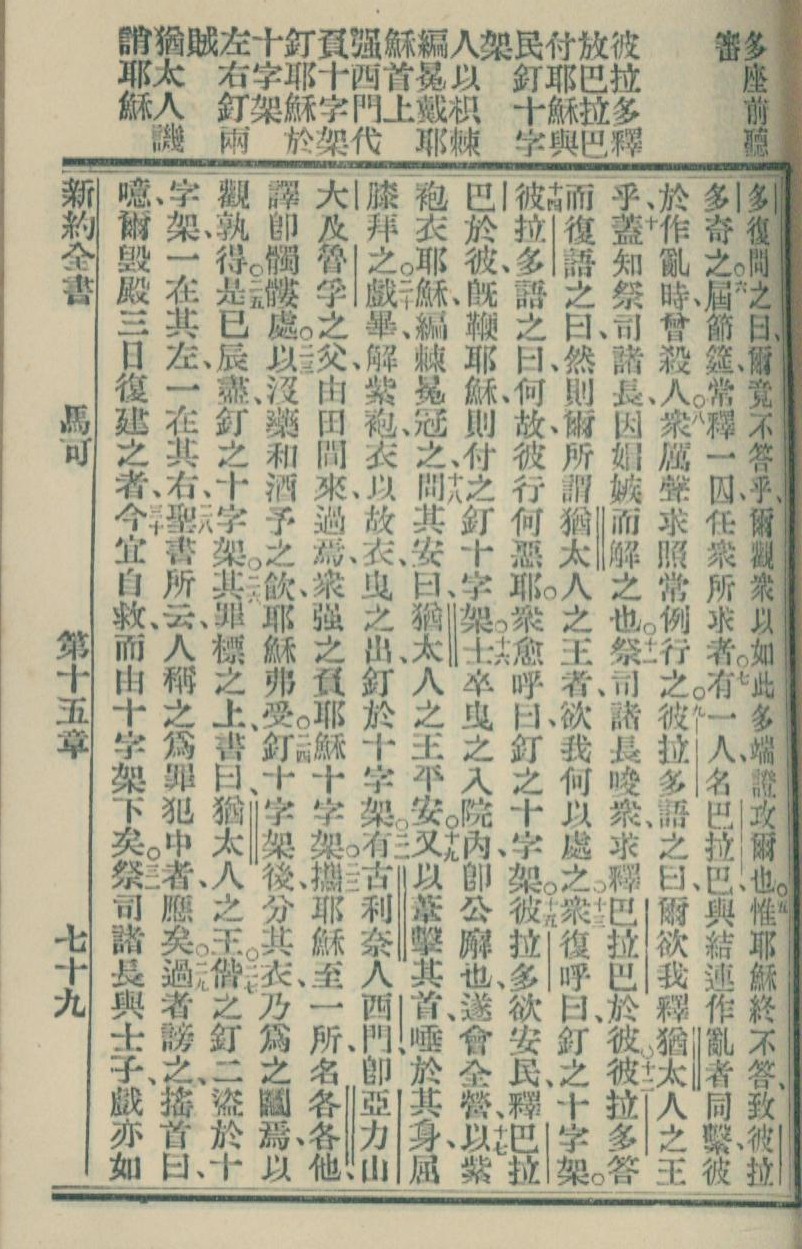 多座前聽
審
彼拉多釋
放巴拉巴
付耶穌與
民釘十字
架
人以枳棘
編冕戴耶
穌首上
强西門代
負十字架
釘耶穌於
十字架
左右釘兩
賊
猶太人譏
誚耶穌
多復問之曰、爾竟不答乎、爾觀衆以如此多端證攻爾也。五惟耶穌終不答、致彼拉
多奇之。六屆節筵、常釋一囚、任衆所求者。七有一人名巴拉巴、與結連作亂者同繫、彼
於作亂時、曾殺人。八衆厲聲求照常例行之。九彼拉多語之曰、爾欲我釋猶太人之王
乎、十蓋知祭司諸長、因娼嫉而解之也。十一祭司諸長唆衆、求釋巴拉巴於彼。十二彼拉多答
而復語之曰、然則爾所謂猶太人之王者、欲我何以處之。十三衆復呼曰、釘之十字架。
十四彼拉多語之曰、何故、彼行何惡耶。衆愈呼曰、釘之十字架。十五彼拉多欲安民、釋巴拉
巴於彼、旣鞭耶穌、則付之釘十字架。十六士卒曳之入院內、卽公廨也、遂會全營、十七以紫
袍衣耶穌、編棘冕冠之、十八問其安曰、猶太人之王平安。十九又以葦擊其首、唾於其身、屈
膝拜之。二十戲畢、解紫袍、衣以故衣、曳之出、釘於十字架。二一有古利奈人西門、卽亞力山
大及魯孚之父、由田間來、過焉、衆强之負耶穌十字架。二二攜耶穌至一所、名各各他、
譯卽髑髏處。二三以沒藥和酒予之飮、耶穌弗受。二四釘十字架後、分其衣、乃爲之鬮焉、以
觀孰得。二五是已辰盡、釘之十字架。二六其罪標之上、書曰、猶太人之王。二七偕之釘二盜於十
字架、一在其左、一在其右、二八聖書所云、人稱之爲罪犯中者、應矣。二九過者謗之、搖首曰、
噫、爾毀殿三日復建之者、三十今宜自救、而由十字架下矣。三一祭司諸長與士子、戲亦如
新約全書 馬可 第十五章 七十九